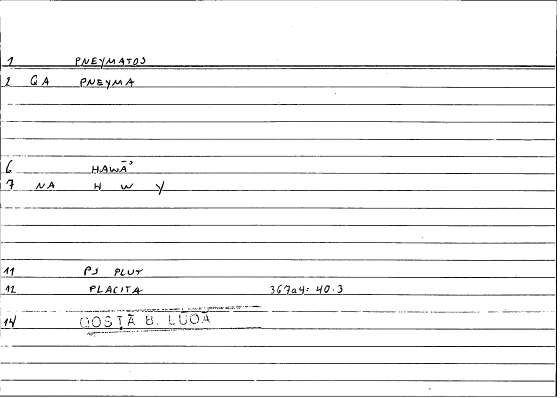 1 PNEYMATOS
2 QA PNEYMA
6 HAWĀʾ
7 NA H W Y
11 PS PLUT
12 PLACITA 367a4: 40.3
14 QOSṬĀ B. LŪQĀ